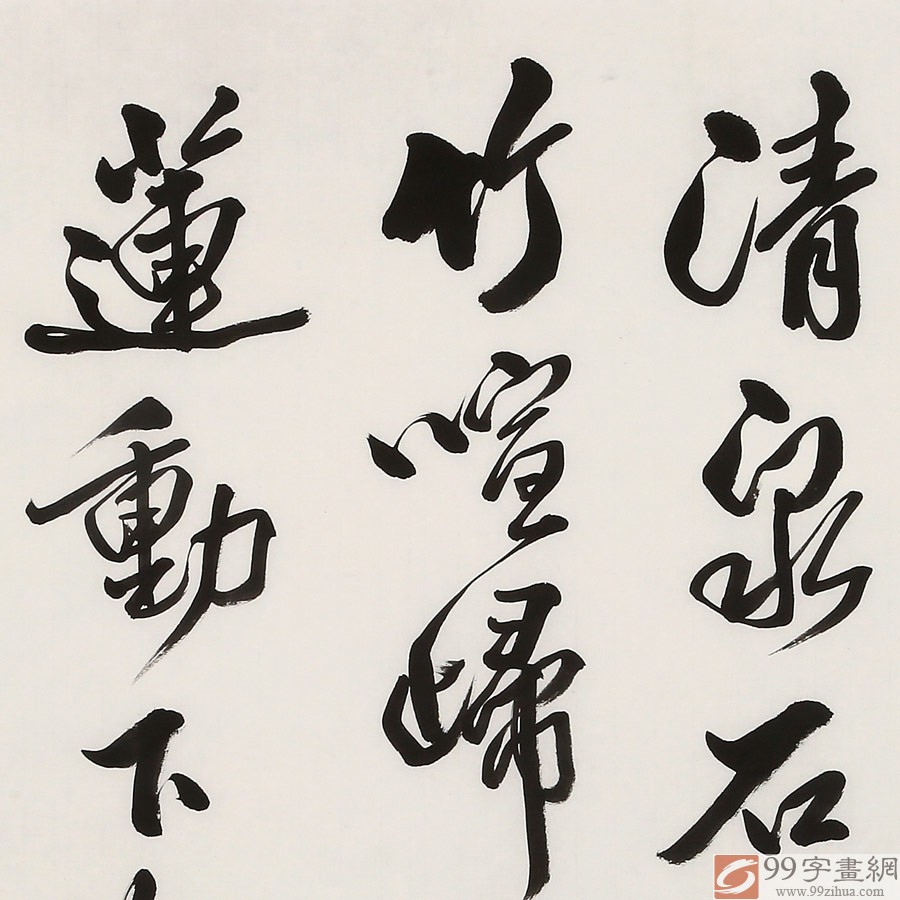 清泉石
竹喧歸
蓮動下
99字畫網
www.99zihua.com